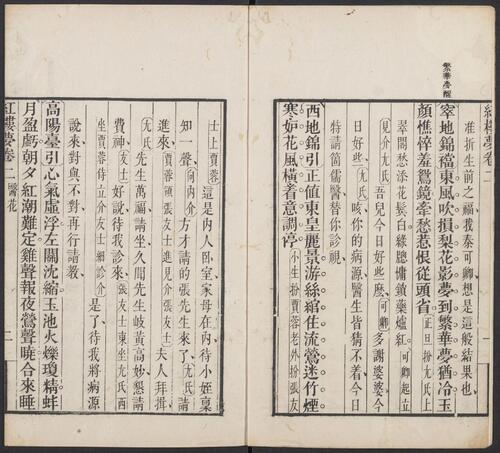 繁華夢醒
紅樓夢卷二 一
准折生前之福我秦可卿想是這般結果也
宰地錦襠東風吹損梨花影夢到繁華夢猶冷玉
顏憔悴羞鸞鏡牽愁惹恨從頭省正旦扮尤氏上
翠閣愁添花鬢白綠牕慵鎮藥爐紅可卿起立
見介尤氏吾兒今日好些麽可卿多謝婆婆今
日好些尤氏咳你的病源醫生皆猜不着今日
特請箇儒醫替你診視
西地錦引正值東皇麗景游絲綰住流鶯迷竹煙
寒妬花風橫着意調停小生扮賈蓉老外扮張友
士上賈蓉這是內人臥室家母在內待小姪稟
知一聲向內介方才請的張先生來了尤氏請
進來賈蓉領張友士進見介張友士夫人拜揖
尤氏先生萬福請坐久聞先生岐黃高妙懇請
費神友士好說待我診來張友士東坐尤氏西
坐賈蓉侍立介友士細診介是了待我將病源
說來對與不對再行請教
高陽臺引心氣虛浮左關沈縮玉池火爍瓊精蚌
月盈虧朝夕紅潮難定雞聲報夜鶯聲曉合來睡
紅樓夢卷二 醫花 二